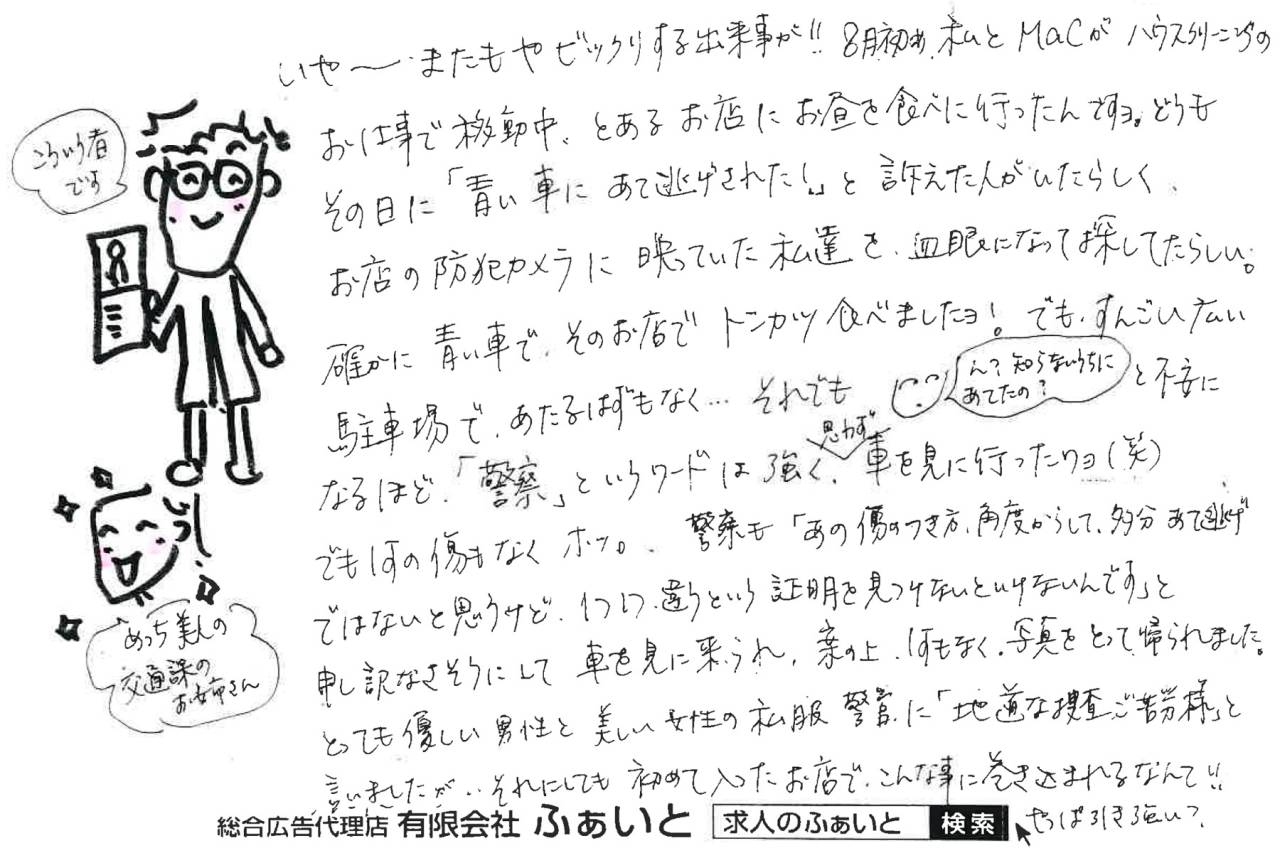 いや〜またもやビックリする出来事が!! 8月初め、私とMaCがハウスクリーニングの
お仕事で移動中、とあるお店にお昼を食べに行ったんですヨ。どうも
その日に「青い車にあて逃げされた!」と訴えた人がいたらしく、
お店の防犯カメラに映っていた私達を、血眼になって探してたらしい。
確かに青い車で、そのお店でトンカツ食べましたヨ! でも、すんごい広い
駐車場で、あたるはずもなく… それでも
ん?知らないうちに
あてたの?
と不安に
なるほど、「警察」というワードは強く、思わず車を見に行ったワヨ(笑)
でも何の傷もなくホッ。警察も「あの傷のつき方、角度からして、多分あて逃げ
ではないと思うけど、1つ1つ、違うという証明を見つけないといけないんです」と
申し訳なさそうにして車を見に来られ、案の上、何もなく、写真をとって帰られました。
とっても優しい男性と美しい女性の私服警官に「地道な捜査ご苦労様」と
言いましたが‥それにしても初めて入ったお店で、こんな事に巻き込まれるなんて!!
やっぱ引き強い?
こういう者
です
めっち美人の
交通課の
お姉さん
総合広告代理店 有限会社 ふぁいと 求人のふぁいと 検索